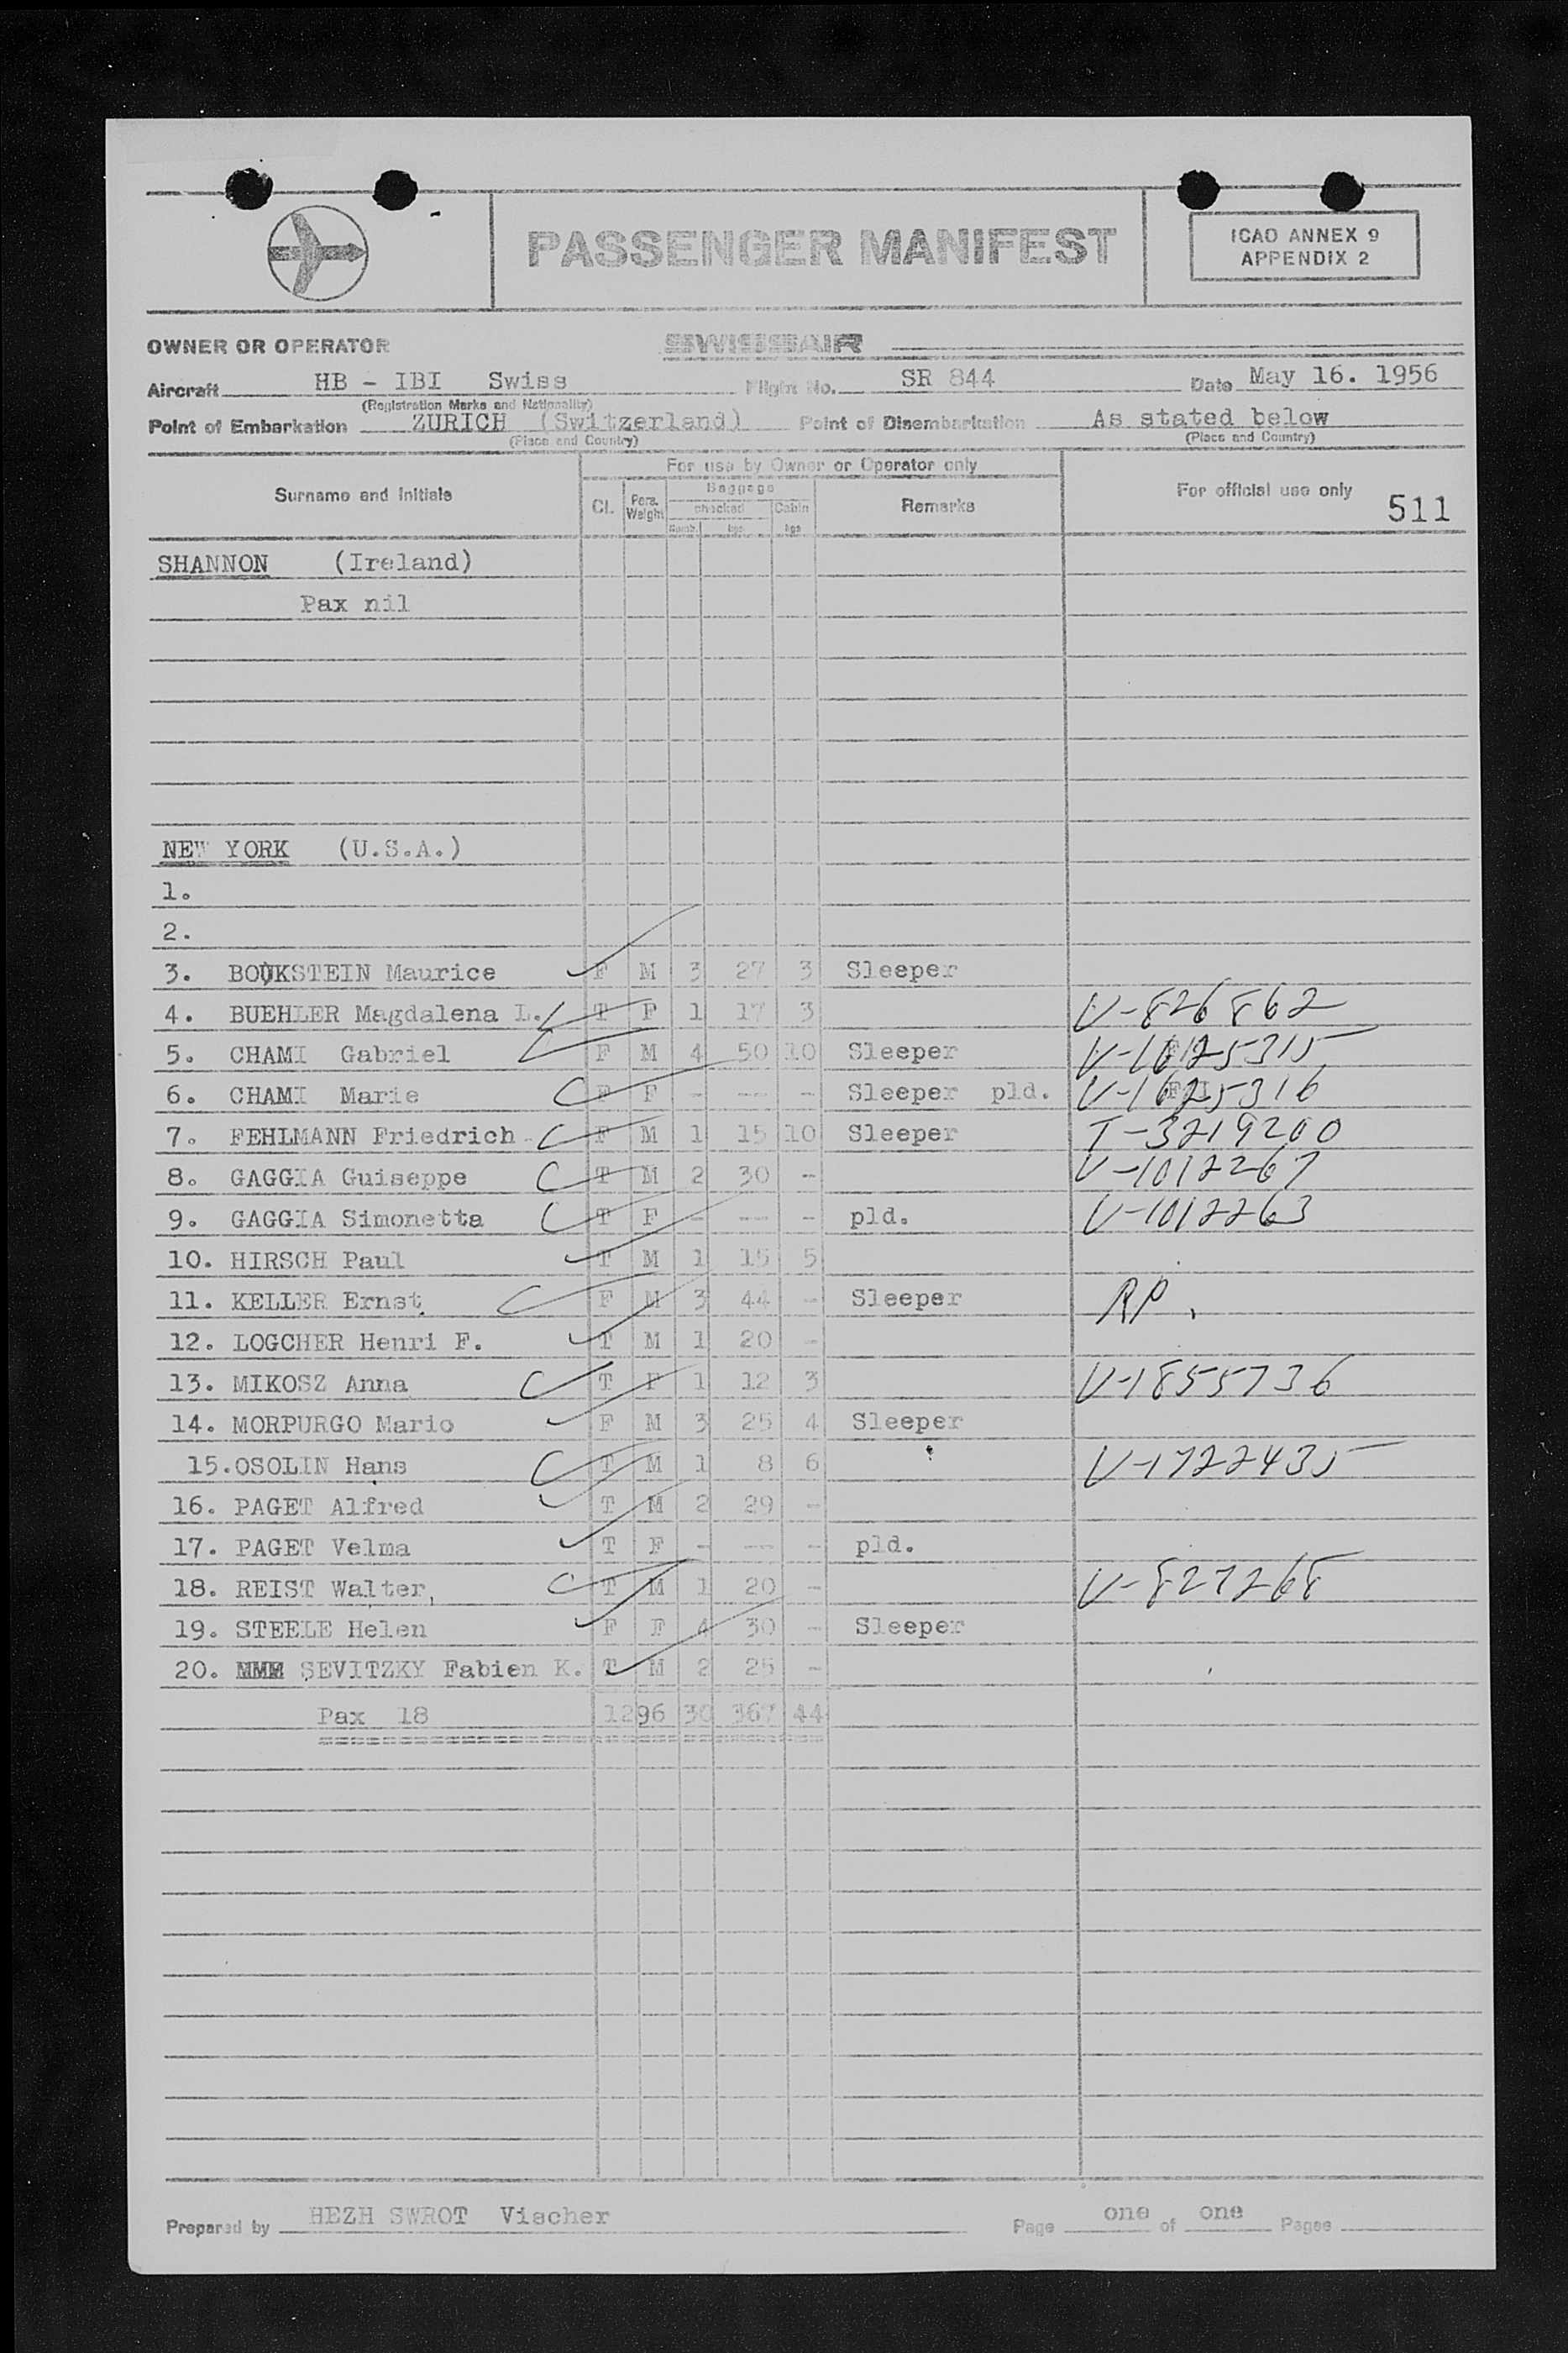 PASSENGER MANIFEST
ICAO ANNEX 9
APPENDIX 2
OWNER OR OPERATOR SWISSAIR
Aircraft HB - IBI Swiss Flight No. SR 844 Date May 16. 1956
(Registration Marks and Nationality)
Point of Embarkation ZURICH (Switzerland) Point of Disembarkation As stated below
(Place and Country) (Place and Country)
For use by Owner or Operator only
Surname and Initials Cl. Pers. Weight Baggage checked Numb. kgs Cabin kgs Remarks For official use only
511
SHANNON (Ireland)
Pax nil
NEW YORK (U.S.A.)
1.
2.
3. BOUKSTEIN Maurice F M 3 27 3 Sleeper
4. BUEHLER Magdalena L. T F 1 17 3 V-826862
5. CHAMI Gabriel F M 4 50 10 Sleeper V-1625315
6. CHAMI Marie F F - --- - Sleeper pld. V-1625316
7. FEHLMANN Friedrich F M 1 15 10 Sleeper T-3219200
8. GAGGIA Guiseppe T M 2 30 - V-1012267
9. GAGGIA Simonetta T F - --- - pld. V-1012263
10. HIRSCH Paul T M 1 15 5
11. KELLER Ernst F M 3 44 - Sleeper RP.
12. LOGCHER Henri F. T M 1 20 -
13. MIKOSZ Anna T F 1 12 3 V-1855736
14. MORPURGO Mario F M 3 25 4 Sleeper
15.OSOLIN Hans T M 1 8 6 V-1722435
16. PAGET Alfred T M 2 29 -
17. PAGET Velma T F - --- - pld.
18. REIST Walter, T M 1 20 - V-827268
19. STEELE Helen F F 4 30 - Sleeper
20. MMM SEVITZKY Fabien K. T M 2 25 -
Pax 18 1296 30 367 44
Prepared by HEZH SWROT Vischer Page one of one Pages